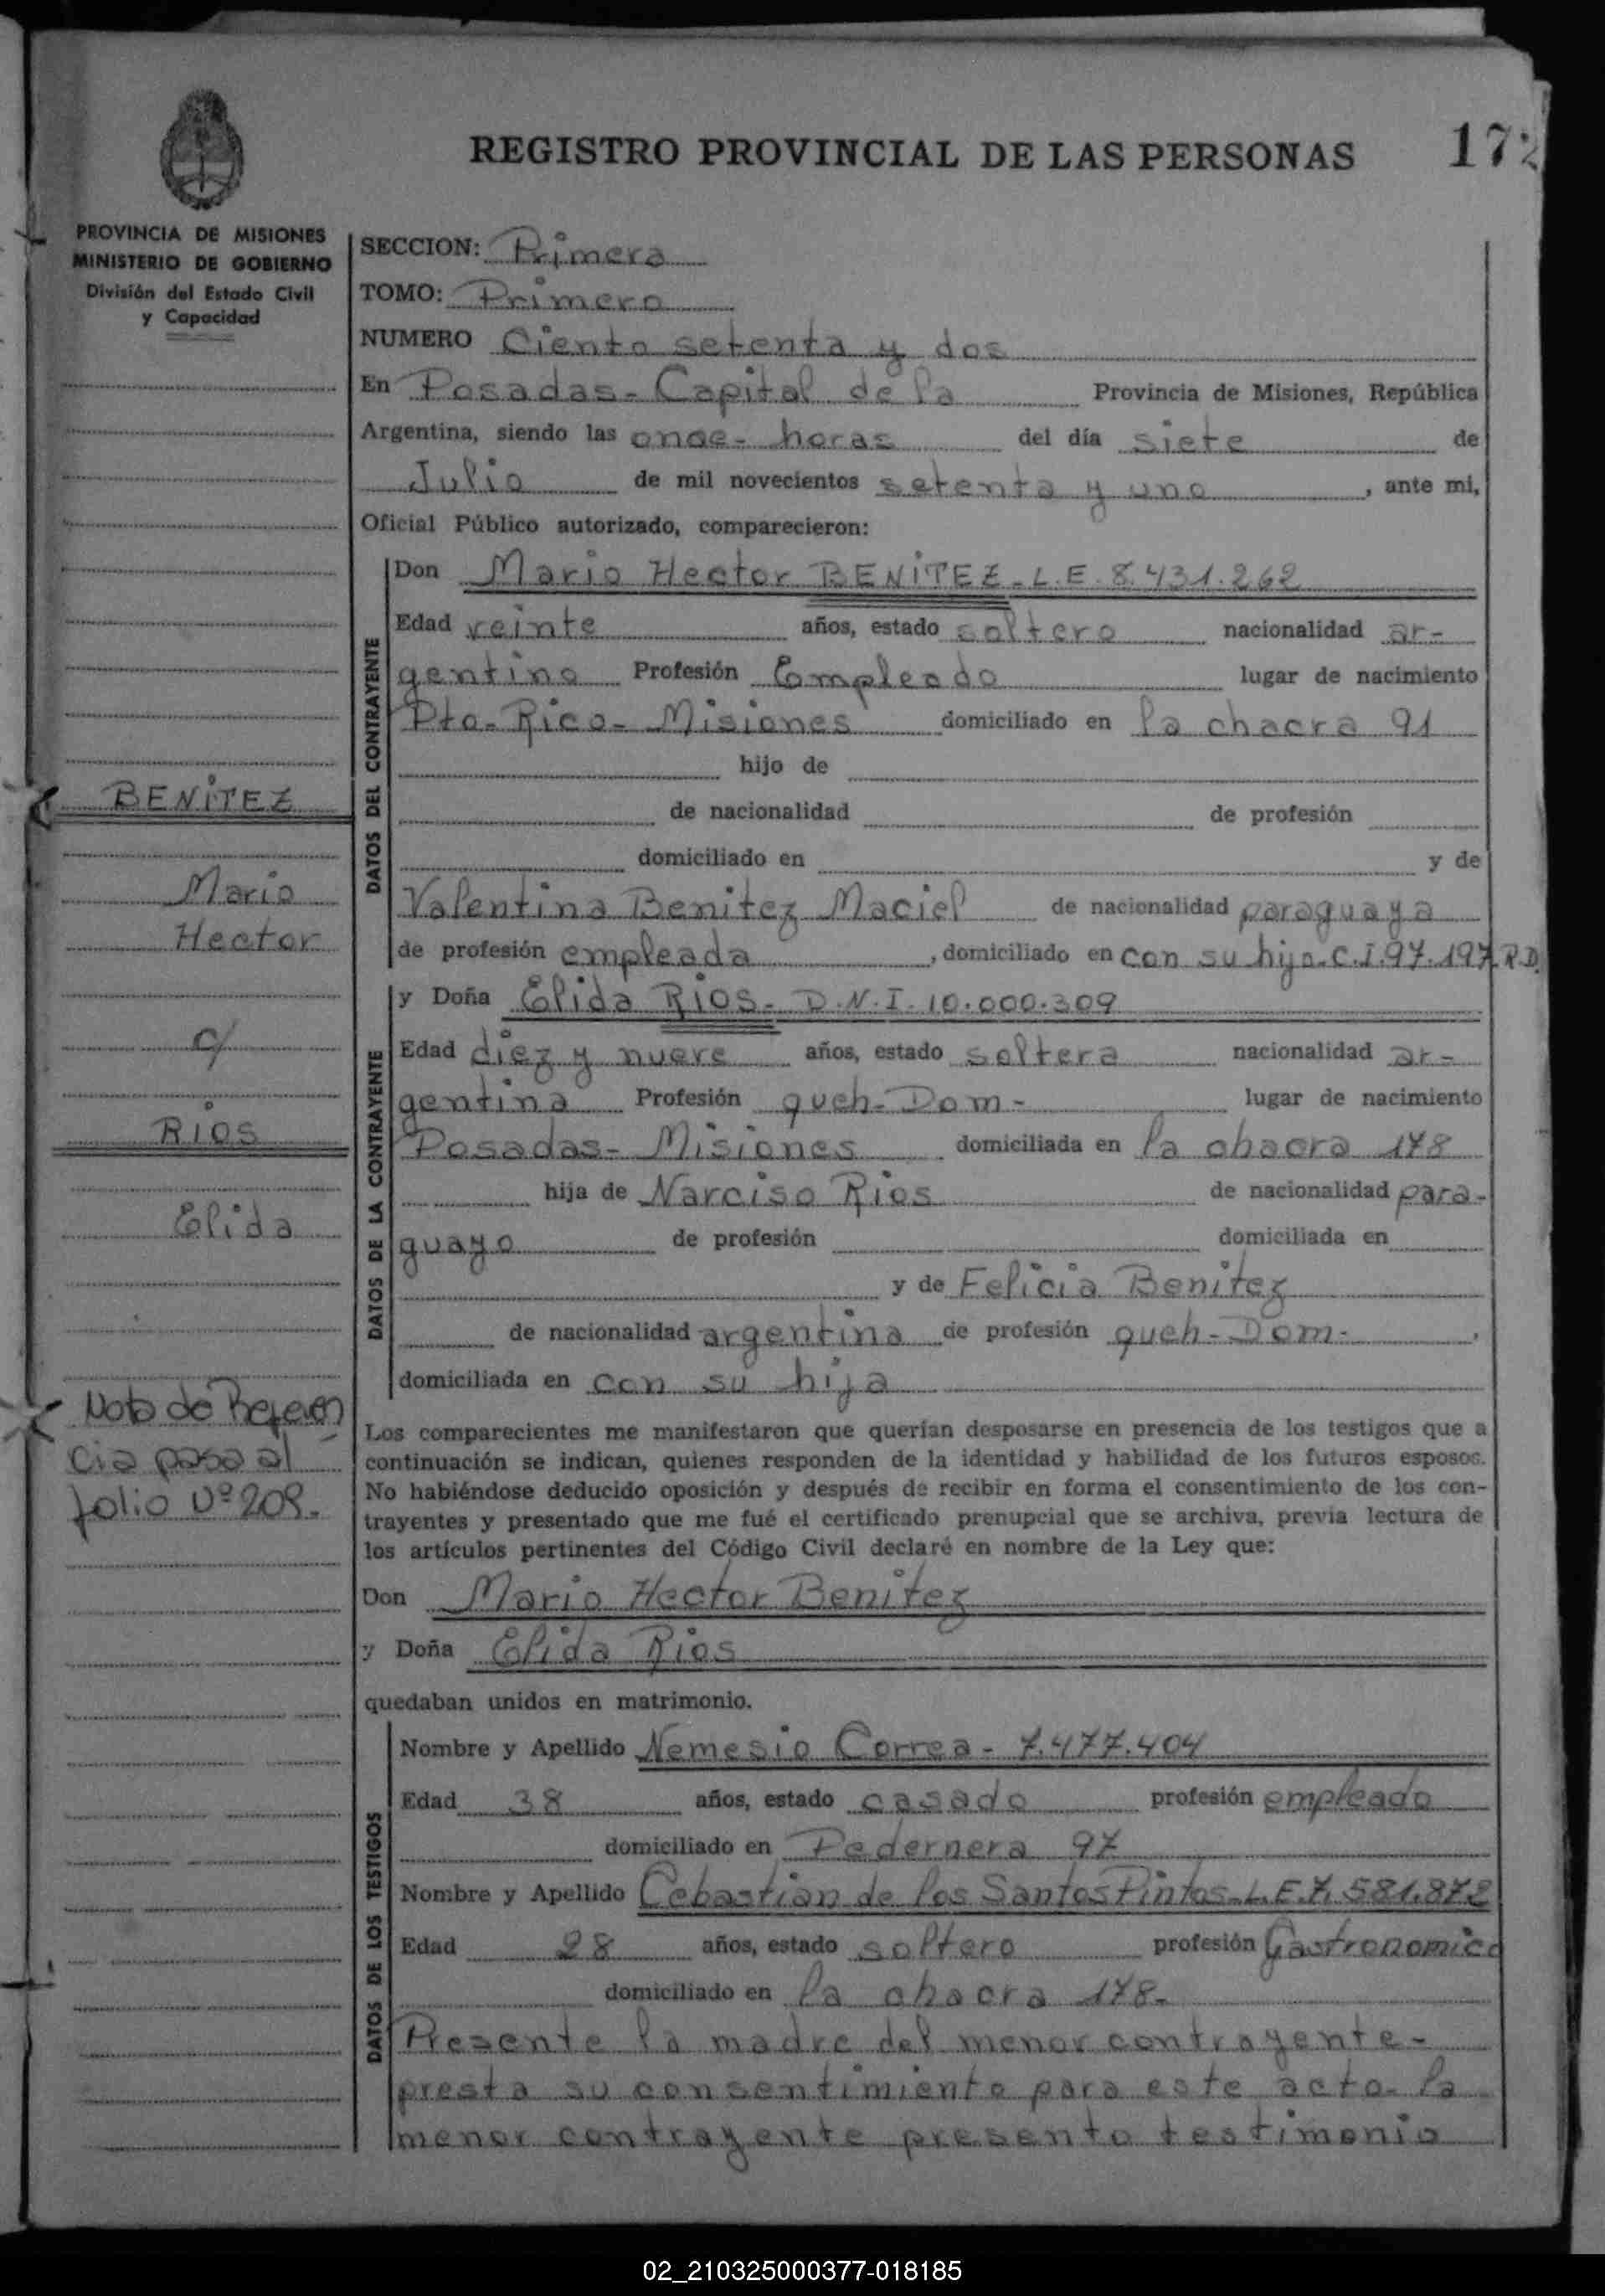 REGISTRO PROVINCIAL DE LAS PERSONAS
172
PROVINCIA DE MISIONES
MINISTERIO DE GOBIERNO
División del Estado Civil
y Capacidad
BENITEZ
Mario
Hector
c/
RIOS
Elida
Nota de Referen
cia pasa al
folio Nº 209.
SECCION: Primera
TOMO: Primero
NUMERO Ciento setenta y dos
En Posadas - Capital de la Provincia de Misiones, República
Argentina, siendo las once - horas del día siete de
Julio de mil novecientos setenta y uno, ante mi,
Oficial Público autorizado, comparecieron:
DATOS DEL CONTRAYENTE
Don Mario Hector BENITEZ - L.E. 8.431.262
Edad veinte años, estado soltero nacionalidad ar-
gentino Profesión Empleado lugar de nacimiento
Pto. Rico - Misiones domiciliado en la chacra 91
hijo de
de nacionalidad de profesión
domiciliado en y de
Valentina Benitez Maciel de nacionalidad paraguaya
de profesión empleada, domiciliado en con su hijo. C.I. 97.197 R.D.
DATOS DE LA CONTRAYENTE
y Doña Elida RIOS - D.N.I. 10.000.309
Edad diez y nueve años, estado soltera nacionalidad ar-
gentina Profesión queh - Dom - lugar de nacimiento
Posadas - Misiones domiciliada en la chacra 178
hija de Narciso Rios de nacionalidad para-
guayo de profesión domiciliada en
y de Felicia Benitez
de nacionalidad argentina de profesión queh - Dom -,
domiciliada en con su hija
Los comparecientes me manifestaron que querían desposarse en presencia de los testigos que a
continuación se indican, quienes responden de la identidad y habilidad de los futuros esposos.
No habiéndose deducido oposición y después de recibir en forma el consentimiento de los con-
trayentes y presentado que me fué el certificado prenupcial que se archiva, previa lectura de
los artículos pertinentes del Código Civil declaré en nombre de la Ley que:
Don Mario Hector Benitez
y Doña Elida Rios
quedaban unidos en matrimonio.
DATOS DE LOS TESTIGOS
Nombre y Apellido Nemesio Correa - 7.477.404
Edad 38 años, estado casado profesión empleado
domiciliado en Pedernera 97
Nombre y Apellido Cebastian de los Santos Pintos - L.E. 7.581.872
Edad 28 años, estado soltero profesión Gastronomico
domiciliado en la chacra 178 -
Presente la madre del menor contrayente -
presta su consentimiento para este acto - la
menor contrayente presento testimonio
02_210325000377-018185